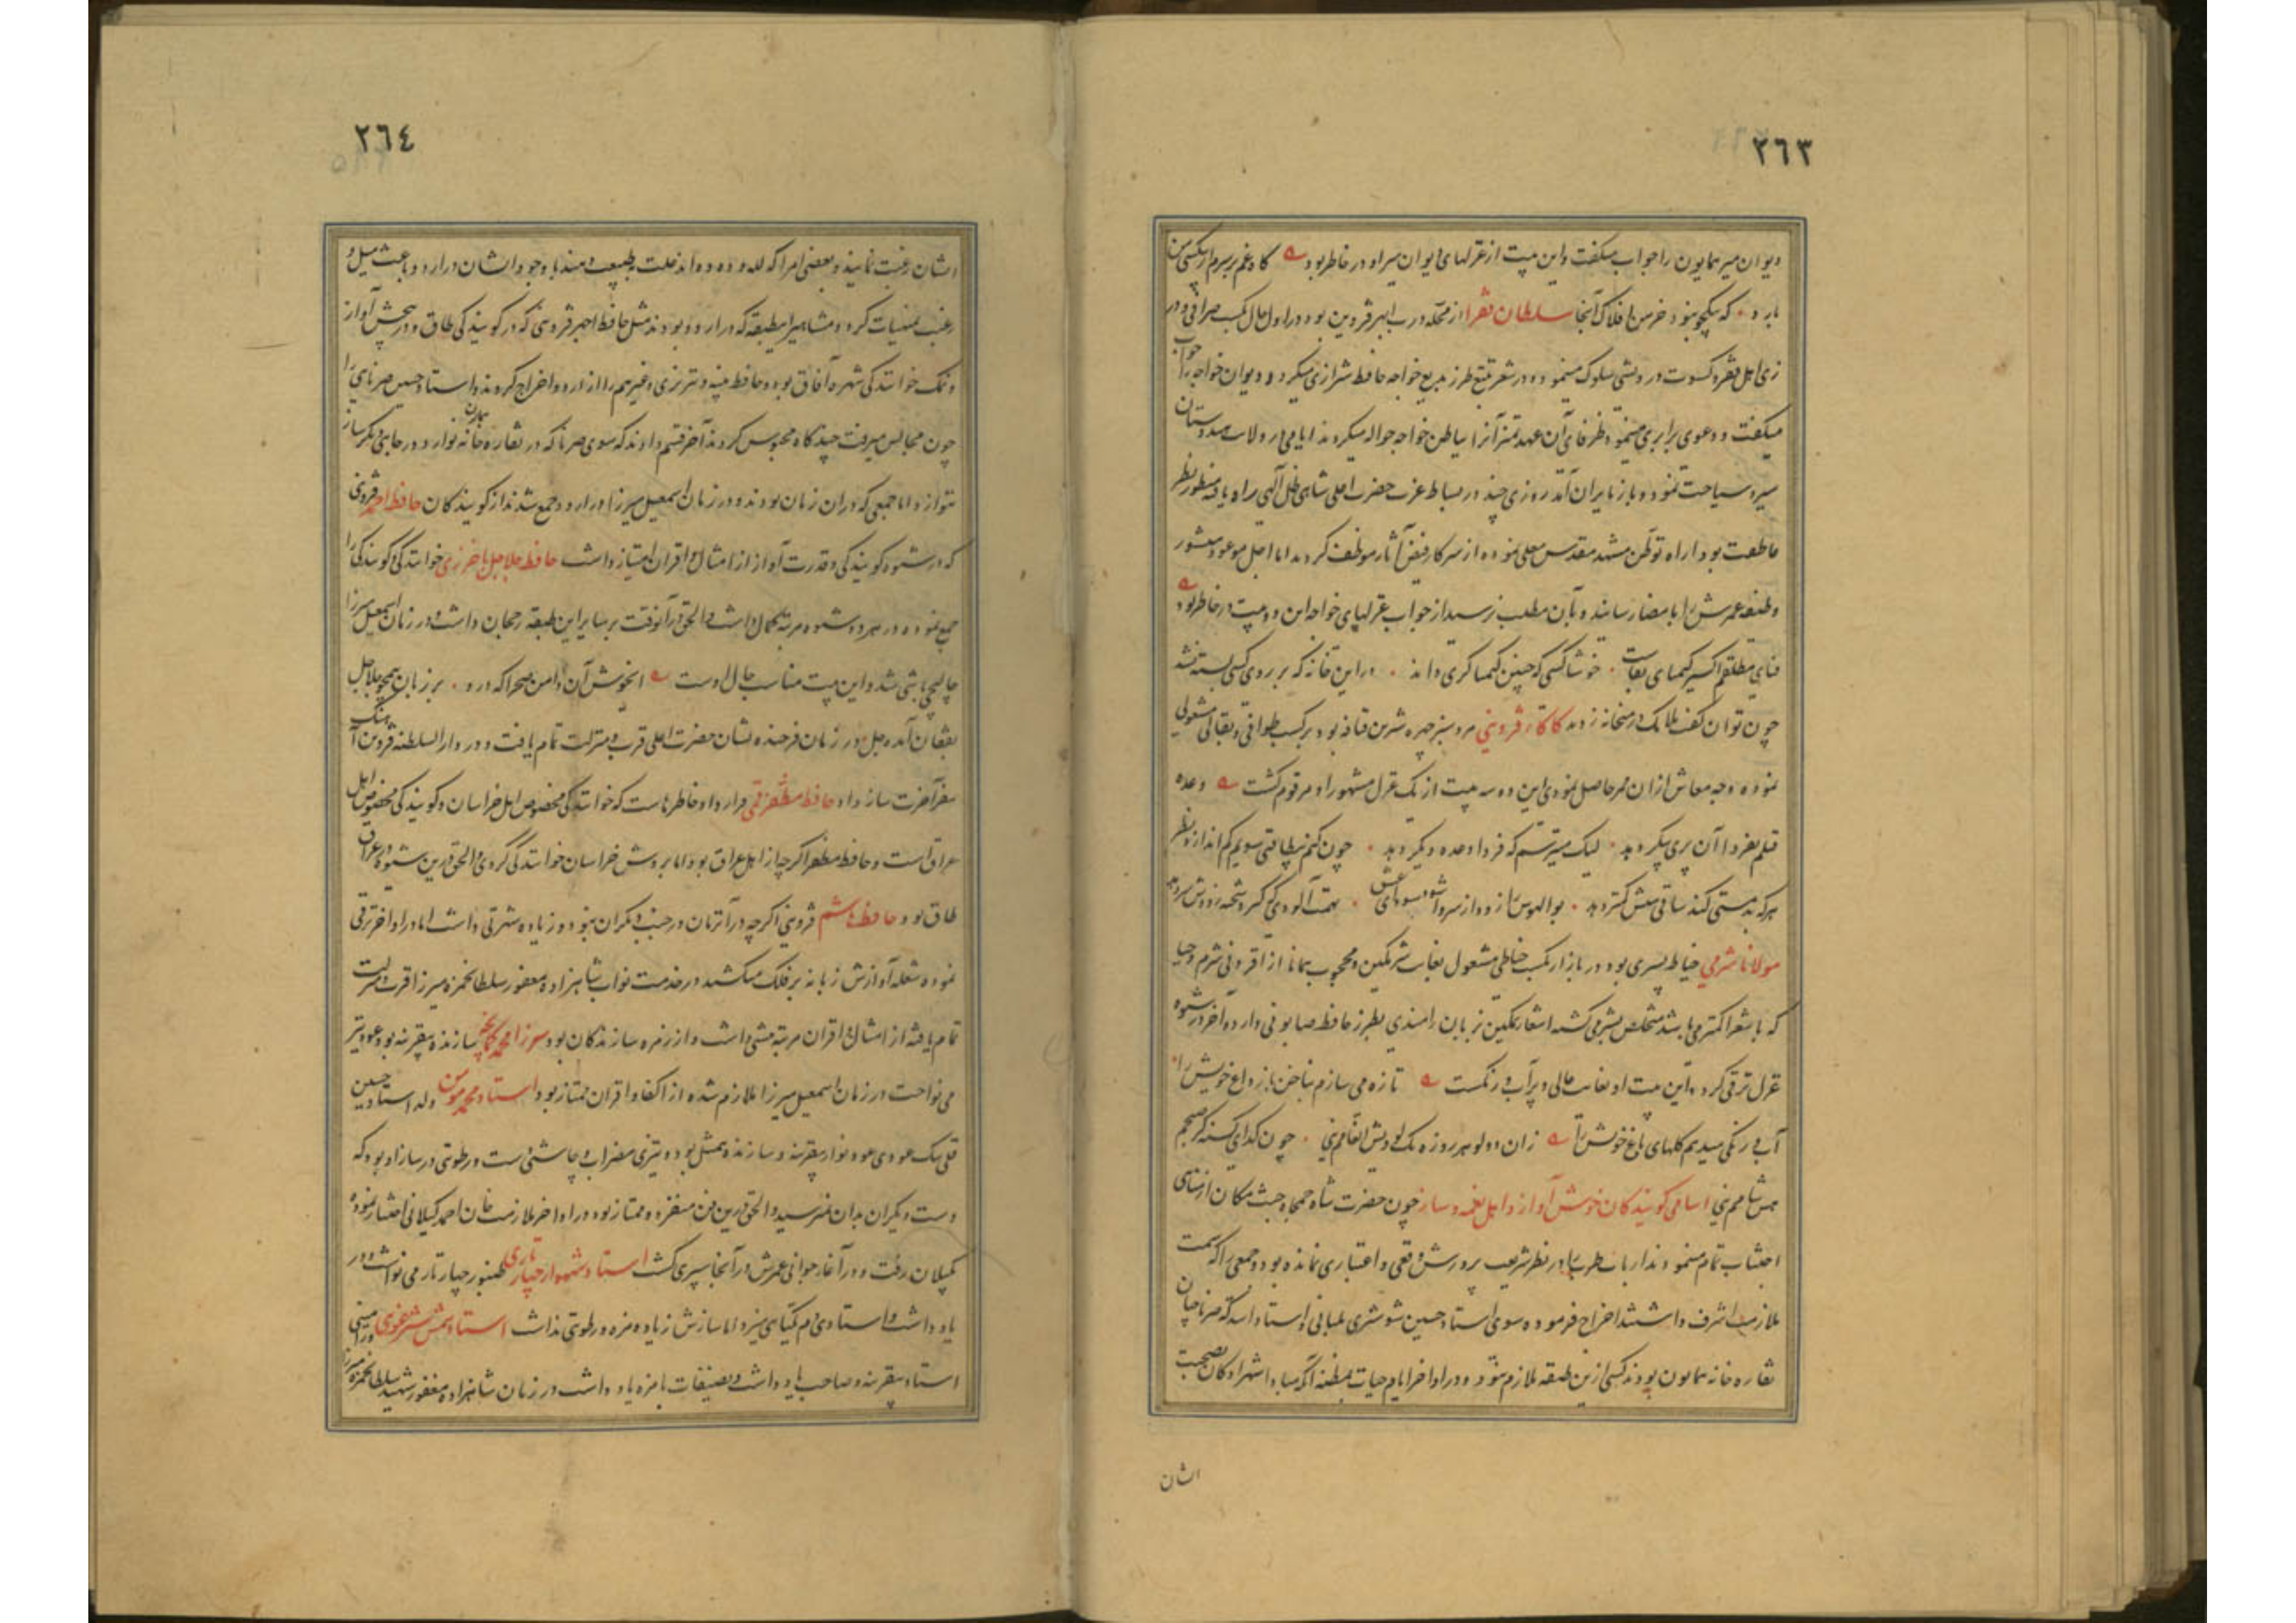 ٢٦٣
دیوان میر همایون را جواب میگفت و این بیت از غزلهای دیوان میر او در خاطر بود
بارد که بکجو نبود خرمن افلاک آنجا سلطان فقرا از محله درب ابهر قزوین بود در اول حال بکسب صرافی و در
زی اهل فقر و کسوت درویشی سلوک مینمود و در شعر تتبع طرز بدیع خواجه حافظ شیرازی میکرد و دیوان خواجه را جواب
میگفت و دعوی برابری مینمود ظرفای آن عهد تمیز آنرا بباطن خواجه حواله میکردند ایامی در ولایت هندوستان
سیر و سیاحت نموده و باز بایران آمد روزی چند در بساط عزت حضرت اعلی شاهی ظل آلهی راه یافته منظور نظر
عاطفت بود اراده توطن مشهد مقدس معلی نموده از سرکار فیض آثار موظف کردید اما اجل موعود منشور
وظیفه عمرش را بامضا رسانند و بآن مطلب نرسید از جواب غزلهای خواجه این دو بیت در خاطر بود
فنای مطلقم اکسیر کیمیای بقاست خوشا کسی که چنین کیمیا کری داند در این خانه که بر روی کسی بسته نشد
چون توان گفت ملایک در میخانه زدند کاکاء قزوینی مرد سبز چهره شیرین قیافه بود بر کسب طوافی و بقالی مشغولی
نموده وجه معاش از ان ممر حاصل نمودی این دو سه بیت از یک غزل مشهور او مرقوم کشت وعده
قتلم بفردا آن پری پیکر دهد لیک میترسم که فردا وعده دیکر دهد چون کنم بیطاقتی سویم کم اندازد نظر
هر که بدمستی کند ساقی میش کمتر دهد بوالهوس را زود از سر وا شود سودای عشق تهمت آلودی که گیرد شحنه زودش سر دهد
مولانا شرمی خیاط پسری بود در بازار بکسب خیاطی مشغول بغایت شرمکین و محجوب همانا از افزونی شرم و حیا
که با شعرا کمتر می باشد متخلص بشرمی کشته اشعار نمکین بزبان رامندی بطرز حافظ صابونی دارد و آخر در شیوه
غزل ترقی کرد این بیت او بغایت عالی و پر آب و رنکست تازه می سازم بناخن باز داغ خویش را
آب و رنگی میدهم کلهای باغ خویش را زان دو لو هر روزه یک بویش انعامم نی چون کدای کسنه کز صبحم
بس شامم نی اسامی کویندکان خوش آواز و اهل نغمه و ساز چون حضرت شاه جمجاه جنت مکان از مناهی
اجتناب تمام مینمودند ارباب طرب را در نظر شریف پرورش وقعی و اعتباری نمانده بود و جمعی را که سمت
ملازمت اشرف داشتند اخراج فرموده سوی استاد حسین شوشتری بلبانی و استاد اسد که صرناچیان
نقاره خانه همایون بودند کسی ازین طبقه ملازم نبود و در اواخر ایام حیات بمظنه آنکه مبادا شهزادکان بصحبت
ایشان
٢٦٤
ایشان رغبت نمایند و بعضی امرا که لله و دده و اند خلت طبیعت و مندبا وجود ایشان در اردو باعث میل و
رغبت بمنهیات کردد مشاهیر این طبقه که در اردو بودند مثل حافظ احمد قزوینی که در کویندکی طاق و در پیچش آواز
و نمک خوانندکی شهره آفاق بود و حافظ پینه و تبریزی و غیرهم را از اردو اخراج کردند و استاد حسین صرنایی را
چون بمجالس میرفت چند کاه محبوس کردند آخر قسم دادند که سوی صرنا که در نقاره خانه همایون نوازد در جایی دیکر ساز
ننوازد اما جمعی که در ان زمان بودند و در زمان اسمعیل میرزا در اردو جمع شدند از کویندکان حافظ احمد قزوینی
که در شیوه کویندکی و قدرت آواز از امثال و اقران امتیاز داشت حافظ جلاجل باخرزی خوانندکی و کویندکی را
جمع نموده در هر دو شیوه مرتبه کمال داشت و الحق در آنوقت بر سایر این طبقه رجحان داشت و در زمان اسمعیل میرزا
چالیچی باشی شد و این بیت مناسب حال اوست ایخوش آن دامن صحرا که در و بر زبان همچو جلاجل
بفغان آمده جل در زمان فرخنده نشان حضرت اعلی قرب و منزلت تمام یافت و در دارالسلطنه قزوین آهنک
سفر آخرت ساز داد حافظ مظفر قمی قرار داد خاطرهاست که خوانندکی مخصوص اهل خراسان و کویندکی مخصوص اهل
عراق است و حافظ مظفر اکر چه از اهل عراق بود اما بروش خراسان خوانندکی کردی و الحق درین شیوه در عراق
طاق بود حافظ هاشم قزوینی اکر چه در آنزمان در جنب دیکران نبود و زیاده شهرتی نداشت اما در اواخر ترقی
نموده شعله آوازش زبانه بر فلک میکشید در خدمت نواب شاهزاده مغفور سلطان حمزه میرزا قرب و منزلت
تمام یافته از امثال و اقران مرتبه بیشی داشت و از زمره سازندکان بود میرزا محمد کمانچه سازنده بیقرینه بود عود نیز
می نواخت در زمان اسمعیل میرزا ملازم شده از اکفا و اقران ممتاز بود استاد محمد مومن ولد استاد حسین
قلی بیک عودی عود نواز بیقرینه و سازنده بیمثل بود و تیزی مضراب و چاشنی دست و رطوبتی در ساز او بود که
دست دیکران بدان نمیرسید و الحق درین فن منفرد و ممتاز بود در اواخر ملازمت خان احمد کیلانی اختیار نموده
بکیلان رفت و در آغاز جوانی عمرش در آنجا سپری کشت استاد شهسوار چهار تاری طنبور چهار تار می نواخت و در
یاد داشت و استادی دم یکتایی میزد اما سازش زیاده مزه و رطوبتی نداشت استاد شمس شترغوهی ورامینی
استاد بیقرینه و صاحب یاد داشت و تصنیفات بامزه یاد داشت در زمان شاهزاده مغفور شهید سلطان حمزه میرزا